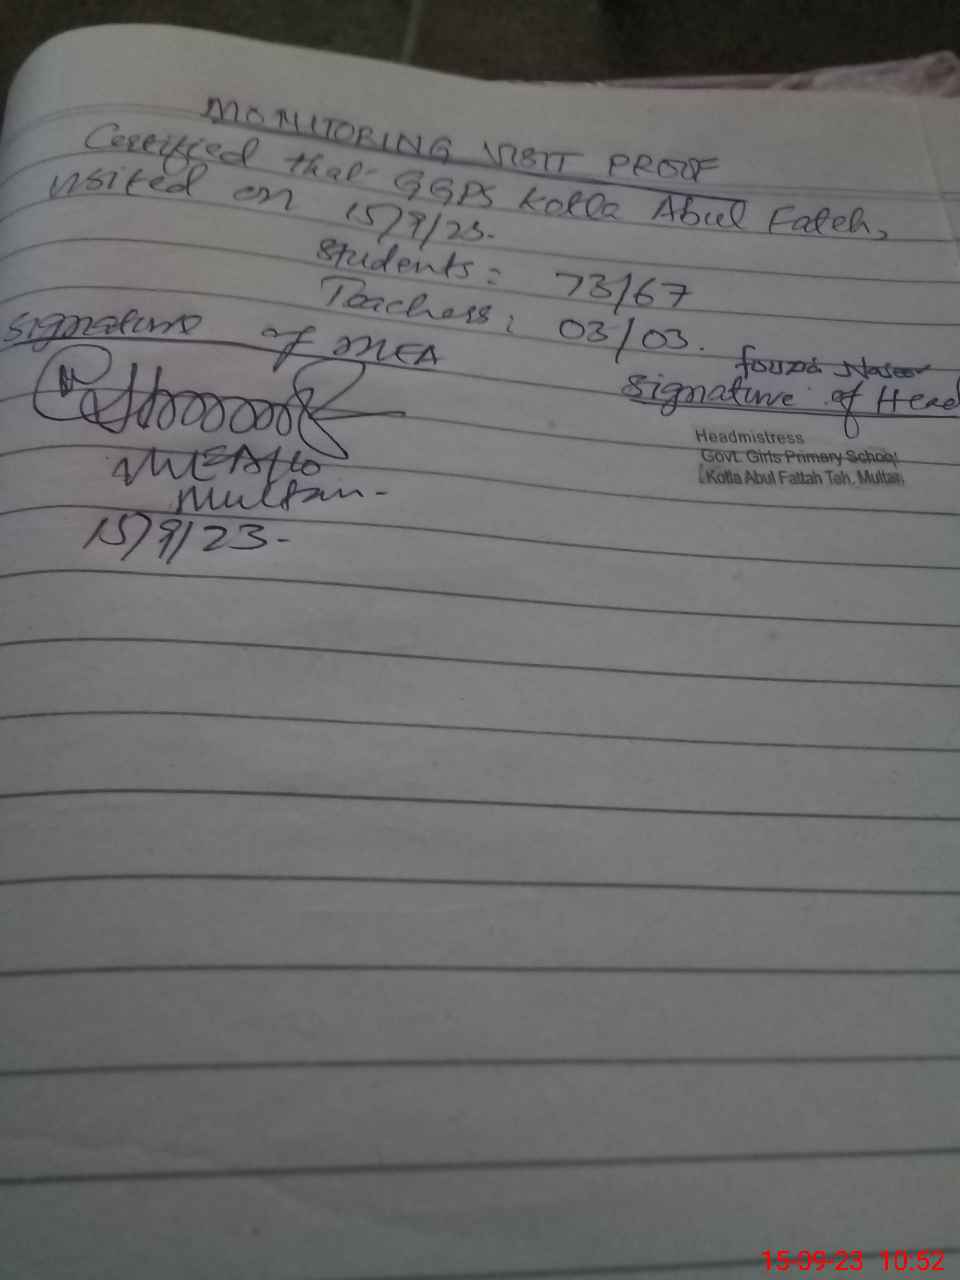 MONITORING VISIT PROOF
Certified that GGPS Kotla Abul Fateh,
visited on 15/9/23.
Students: 73/67
Teachers: 03/03.
Signature of MEA
fouzia Naseer
Signature of Head
Headmistress
Govt. Girls Primary School
Kotla Abul Fattah Teh. Multan
MEA
Multan-
15/9/23-
15-09-23 10:52